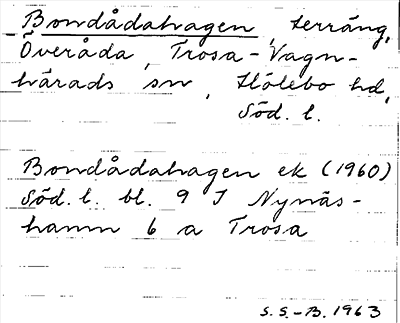 Bondådahagen, terräng,
Överåda, Trosa-Vagn-
härads sn, Hölebo hd,
Söd. l.
Bondådahagen ek (1960)
Söd. l. bl. 9 I Nynäs-
hamn 6 a Trosa
S.S.-B. 1963